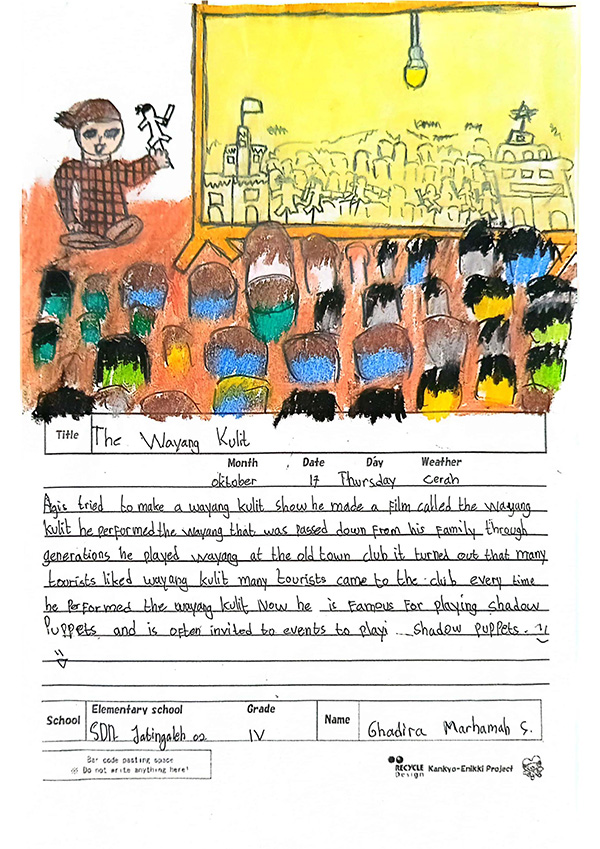 Title The Wayang Kulit
Month Date Day Weather
oktober 17 Thursday cerah
Agis tried to make a wayang kulit show he made a film called the wayang
kulit he performed the wayang that was passed down from his family through
generations he played wayang at the old town club it turned out that many
tourists liked wayang kulit many tourists came to the club every time
he performed the wayang kulit Now he is famous for playing shadow
Puppets and is often invited to events to playi shadow puppets.
School Elementary school Grade Name
SDN Jatingaleh 02 IV Ghadira Marhamah S.
Bar code pasting space
※ Do not write anything here!
RECYCLE Design Kankyo-Enikki Project